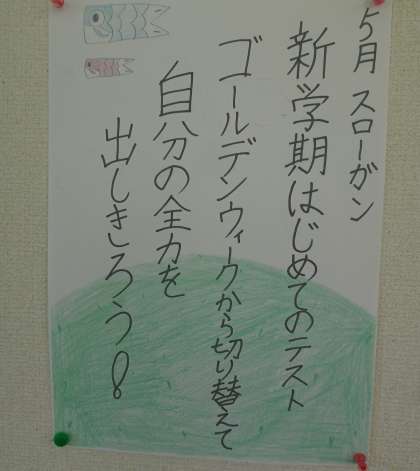 5月 スローガン
新学期はじめてのテスト
ゴールデンウィークから切り替えて
自分の全力を
出しきろう!